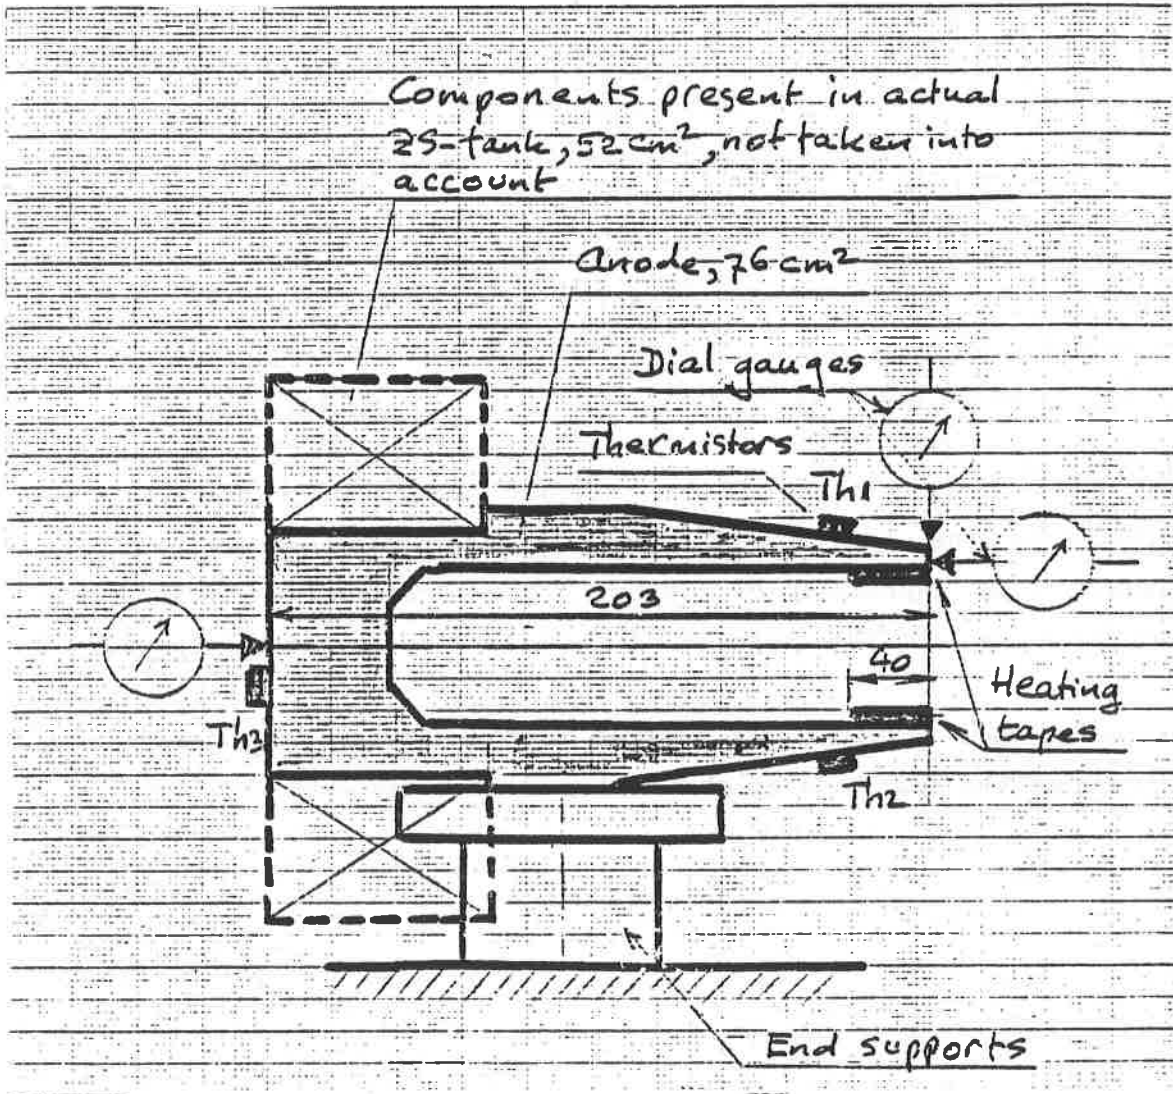 Components present in actual
ZS-tank, 52 cm², not taken into
account
Anode, 76 cm²
Dial gauges
Thermistors
Th1
203
40
Heating
tapes
Th3
Th2
End supports